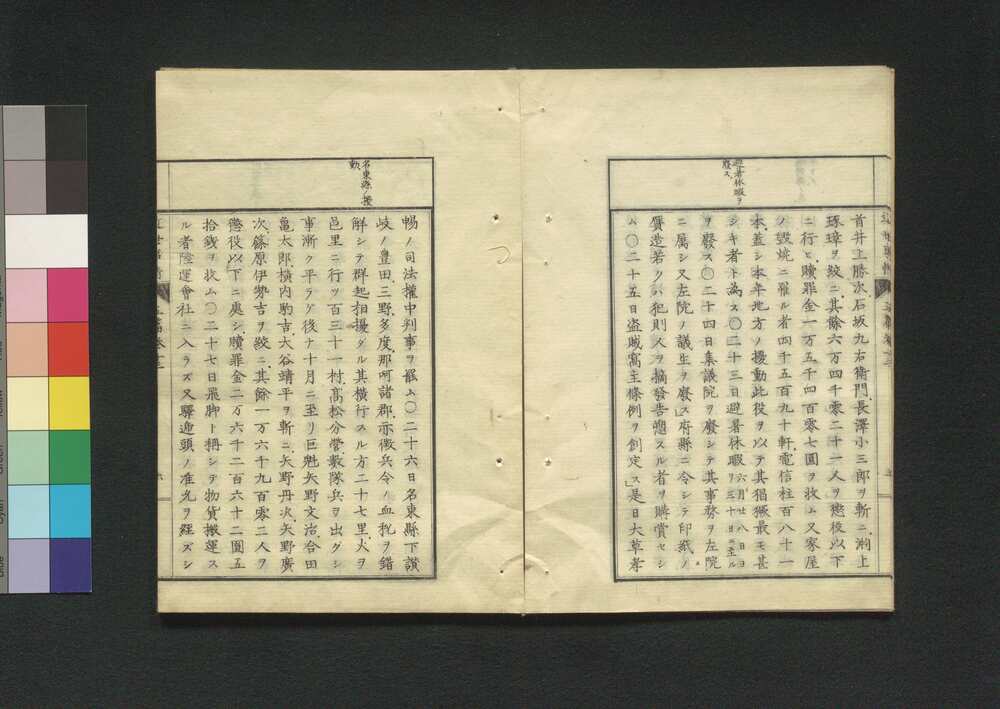 避暑休暇ヲ
廢ス
首井上勝次石坂九右衛門長澤小三郎ヲ斬ニ渕上
琢璋ヲ絞ニ其餘六万四千零二十一人ヲ懲役以下
ニ行ヒ贖罪金一万五千四百零七圓ヲ收ム又家屋
ノ毀焼ニ罹ル者四千五百九十軒電信柱百八十一
本蓋シ本年地方ノ擾動此役ヲ以テ其猖獗最モ甚
シキ者ト為ス〇二十三日避暑休暇六月廿八日ヨリ三十日ニ至ル
ヲ廢ス〇二十四日集議院ヲ廢シテ其事務ヲ左院
ニ属シ又左院ノ議生ヲ廢ス府縣ニ令シテ印紙ノ
贋造若クハ犯則人ヲ摘發告愬スル者ヲ購賞セシ
ム〇二十五日盗賊窩主條例ヲ創定ス是日大草孝
名東縣ノ擾
動
暢ノ司法權中判事ヲ罷ム〇二十六日名東縣下讃
岐ノ豊田三野多度那珂諸郡亦徴兵令ノ血税ヲ錯
解シテ群起招擾ス其横行スル方二十七里火ヲ
邑里ニ行ヲ百三十一村高松分營數隊兵ヲ出グシ
事漸ク平ラグ後チ十月ニ至リ巨魁矢野文治合田
亀太郎横内駒吉大谷靖平ヲ斬ニ矢野丹次矢野廣
次篠原伊勢吉ヲ絞ニ其餘一万六千九百零二人ヲ
懲役以下ニ處シ贖罪金二万六千二百六十二圓五
拾錢ヲ收ム〇二十七日飛脚ト稱シテ物貨搬運ス
ル者陸運會社ニ入ラズ又驛逓頭ノ准允ヲ經ズシ